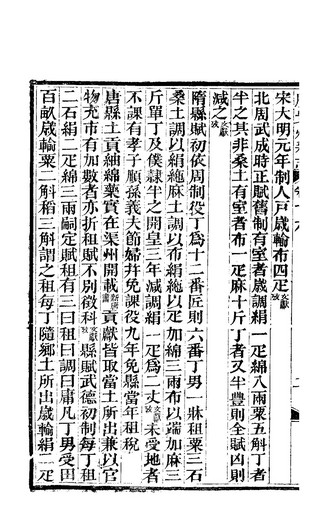 宋大明元年制人戶歲輸布四疋文獻攷
北周武成時正賦舊制有室者歲調絹一疋綿八兩粟五斛丁者
半之其非桑土有室者布一疋麻十斤丁者又半豐則全賦凶則
減之文獻攷
隋縣賦初依周制役丁爲十二番匠則六番丁男一牀租粟三石
桑土調以絹絁麻土調以布絹絁以疋加綿三兩布以端加麻三
斤單丁及僕隷半之開皇三年減調絹一疋爲二丈文獻攷未受地者
不課有孝子順孫義夫節婦并免課役九年免縣當年租税
唐縣土貢紬綿藥實在渠州開載新唐書貢獻皆取當土所出兼以官
物充市有加數者亦折租賦不別徵科文獻攷縣賦武德初制每丁租
二石絹二疋綿三兩嗣定賦租有三曰租曰調曰庸凡丁男受田
百畝歲輸粟二斛稻三斛謂之租每丁隨鄉土所出歲輸絹二疋